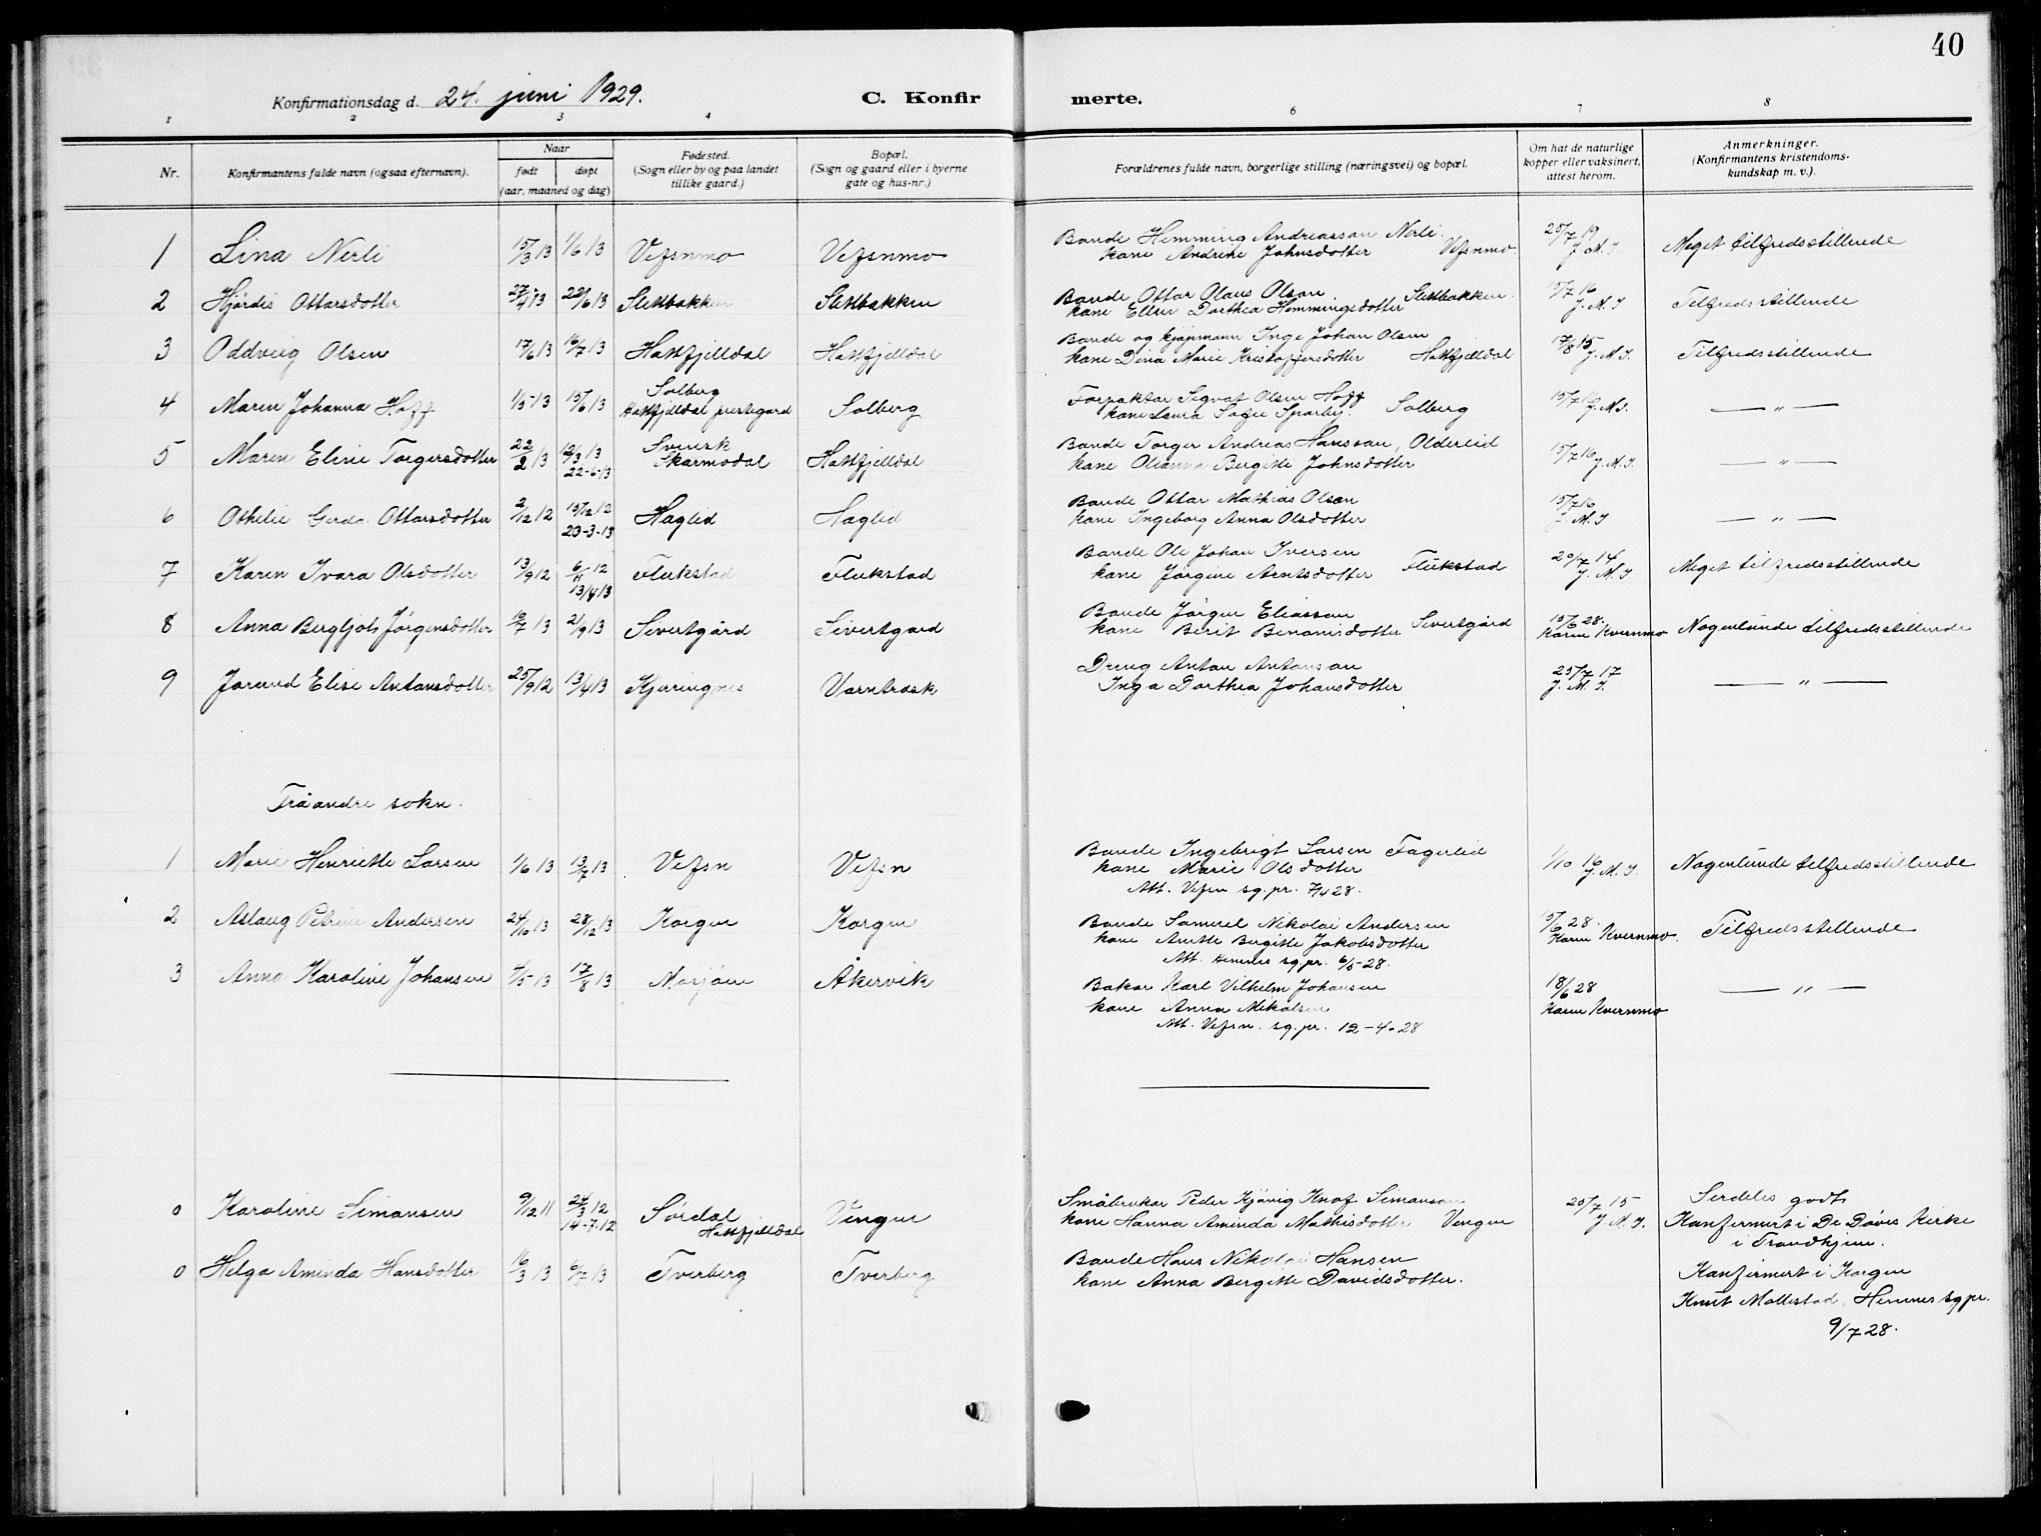 40
Konfirmationsdag d. 24. juni 1929.
C. Konfirmerte.
1 2 3 4 6 7 8
Nr.
Konfirmantens fulde navn (ogsaa efternavn).
Naar
født døpt
(aar, maaned og dag)
Fødested.
(Sogn eller by og paa landet
tillike gaard.)
Bopæl.
(Sogn og gaard eller i byerne
gate og hus-nr.)
Forældrenes fulde navn, borgerlige stilling (næringsvei) og bopæl.
Om hat de naturlige
kopper eller vaksinert,
attest herom.
Anmerkninger.
(Konfirmantens kristendoms-
kundskap m. v.).
1 Lina Nerli 15/3 13 1/6 13 Vefsnmo Vefsnmo Bonde Hemming Andreassan Nerli. 25/7 19 Meget tilfredsstillende
kone Andrine Johnsdotter Vefsnmo. J. M. J
2 Hjördis Ottarsdotter 27/4 13 22/6 13 Slettbakken Slettbakken Bonde Ottar Olaus Olsen Slettbakken. 15/7 16 Tilfredsstillende
kone Ellen Dorthea Hemmingsdotter J. M. J
3 Oddveig Olsen 17/6 13 16/7 13 Hattfjelldal Hattfjelldal Bonde og kjöpmann Inge Johan Olsen 17/8 15 Tilfredsstillende
kone Dina Marie Kristoffersdotter Hattfjelldal J. M. J.
4 Maren Johanna Hoff 1/5 13 15/6 13 Solberg Solberg Forpaktar Sigvat Olsen Hoff 15/7 16 — " —
Hattfjelldal prestegard kone Laura Sofie Sparby. Solberg J. M. J.
5 Maren Eline Torgersdotter 22/2 13 12/3 13 Svensk Hattfjelldal Bonde Torger Andreas Hanssan, Olderlid 15/7 16 — " —
22-6-13 Skarmodal kone Olianna Bergitte Johnsdotter J. M. J.
6 Othelie Gerda Ottarsdotter 2/12 12 15/12 12 Haglid Haglid Bonde Ottar Mathias Olsen 15/7 16 — " —
23-3-13 kone Ingeborg Anna Olsdotter J. M. J
7 Karen Ivara Olsdotter 13/9 12 6/11 12 Flukstad Flukstad Bonde Ole Johan Iversen 20/7 14 Meget tilfredsstillende
13/4 13 kone Jörgine Arntsdotter Flukstad J. M. J
8 Anna Bergljot Jörgensdotter 10/7 13 21/9 13 Sivertgård Sivertgard Bonde Jörgen Eliassan Sivertgård 15/6 28. Nogenlunde tilfredsstillende
kone Berit Benonisdotter Karen Kvernmo
9 Jorund Elise Antonsdotter 25/9 12 13/4 13 Kjerringnes Varntresk Dreng Anton Antonsan 25/7 17 — " —
Inga Dorthea Johansdotter J. M. J.
Frå andre sokn.
1 Marie Henriette Larsen 1/6 13 13/7 13 Vefsn Vefsn Bonde Ingebrigt Larsen Fagerlid 1/10 16 Nogenlunde tilfredsstillende
kone Marie Olsdotter J. M. J.
Att. Vefsn sg. pr. 7/4 28.
2 Aslaug Petrine Andersen 24/10 13 28/12 13 Korgen Korgen Bonde Samuel Nikolai Andersen 15/6 28. Tilfredsstillende
kone Anette Bergitte Jakobsdotter Karen Kvernmo.
Att. Hemnes sg. pr. 6/5-28.
3 Anna Karoline Johansen 4/5 13 17/8 13 Mosjöen Åkervik Bakar Karl Vilhelm Johansen 18/6 28 — " —
kone Anna Mikalsen Karen Kvernmo
Att. Vefsn. sg. pr. 12-4-28
0 Karoline Simonsen 9/12 11 24/3 12 Sørdal Vengen Småbrukar Peder Kjönig Knof Simonsan 20/7 15 Serdeles godt
14-7-12 Hattfjelldal kone Hanna Aminda Mathisdotter Vengen J. M. J. Konfirmert i De Døves Kirke
i Trondhjem.
0 Helga Aminda Hansdotter 16/3 13 6/7 13 Tverberg Tverberg Bonde Hans Nikolai Hansen Konfirmert i Korgen
kone Anna Bergitte Davidsdotter. Knut Mollestad, Hemnes sg pr.
9/7 28.